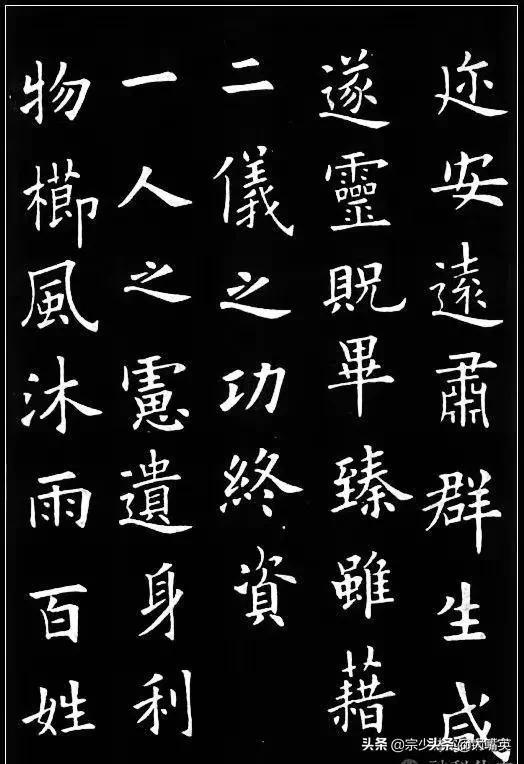 迩安遠肅群生咸
遂靈貺畢臻雖藉
二儀之功終資
一人之慮遺身利
物櫛風沐雨百姓
头条 @宗少头条 @嘴英